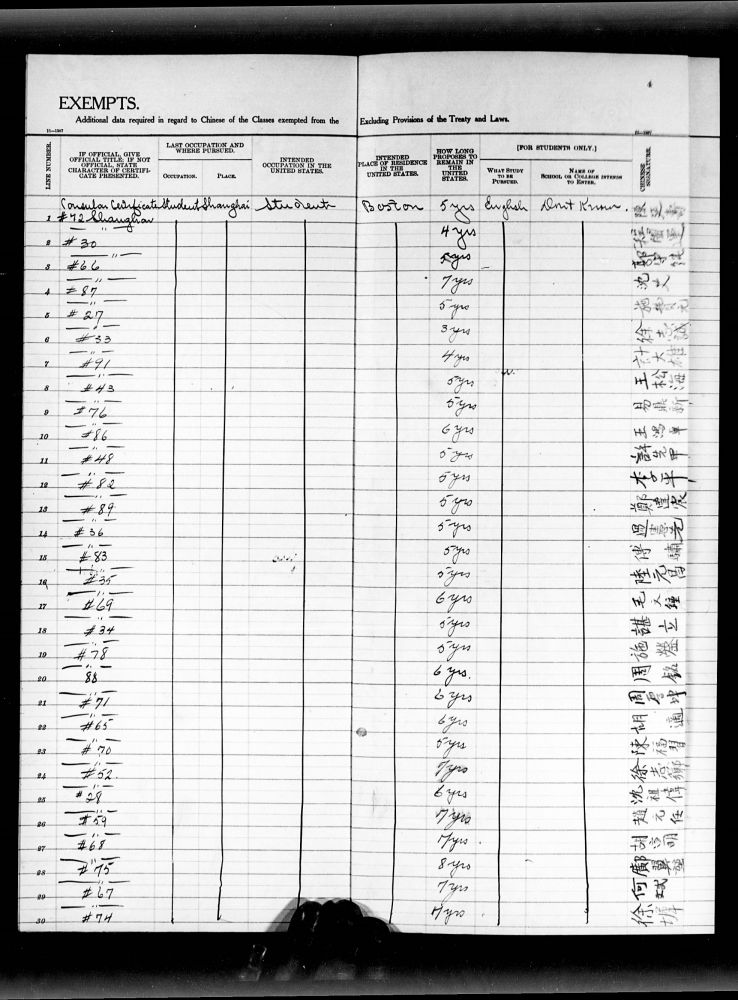 4
EXEMPTS.
Additional data required in regard to Chinese of the Classes exempted from the Excluding Provisions of the Treaty and Laws.
LINE NUMBER.
IF OFFICIAL, GIVE OFFICIAL TITLE; IF NOT OFFICIAL, STATE CHARACTER OF CERTIFICATE PRESENTED.
LAST OCCUPATION AND WHERE PURSUED.
OCCUPATION.
PLACE.
INTENDED OCCUPATION IN THE UNITED STATES.
INTENDED PLACE OF RESIDENCE IN THE UNITED STATES.
HOW LONG PROPOSES TO REMAIN IN THE UNITED STATES.
[FOR STUDENTS ONLY.]
WHAT STUDY TO BE PURSUED.
NAME OF SCHOOL OR COLLEGE INTENDS TO ENTER.
CHINESE SIGNATURE.
Consular Certificate Student Shanghai Student Boston 5 yrs English Dont Know.
1 #72 Shanghai
2 " #30 4 yrs
3 " #66 5 yrs
4 " #87 7 yrs 沈艾
5 " #27 5 yrs
6 " #33 3 yrs 徐志誠
7 " #91 4 yrs 計大雄
8 " #43 5 yrs 王松海
9 " #76 5 yrs 易鼎新
10 " #86 6 yrs 王鴻卓
11 " #48 5 yrs 許先甲
12 " #82 5 yrs 李平
13 " #89 5 yrs 鄭達宸
14 " #36 5 yrs 過憲先
15 " #83 5 yrs 傅驌
16 " #35 5 yrs 陸元昌
17 " #69 6 yrs 毛文鍾
18 " #34 5 yrs 諶立
19 " #78 5 yrs 施瑩
20 88 6 yrs. 周銘
21 " #71 6 yrs 周厚坤
22 " #65 6 yrs 胡適
23 " #70 5 yrs 陳福習
24 " #52. 7 yrs 徐志薌
25 " #28 6 yrs 沈祖偉
26 " #59 7 yrs 趙元任
27 " #68 7 yrs. 胡明
28 " #75 8 yrs 鄺翼堃
29 " #67 7 yrs 何斌
30 " #74 7 yrs 徐墀